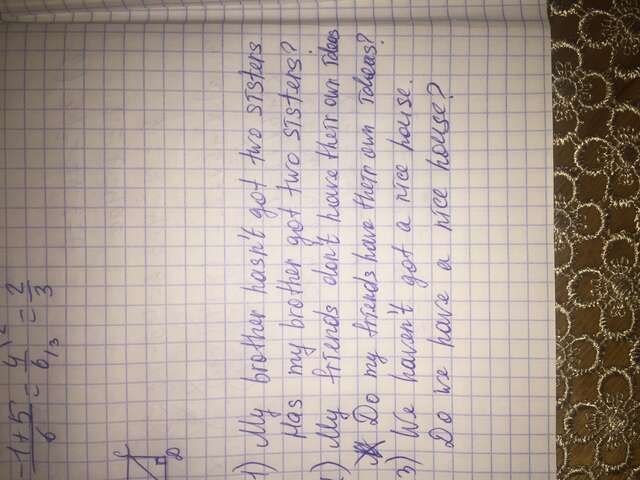 -1+5/6 = 4/6 = 2/3
C
D
1) My brother hasn't got two sisters
Has my brother got two sisters?
) My friends don't have their own ideas
Do my friends have their own ideas?
3) We haven't got a nice house.
Do we have a nice house?